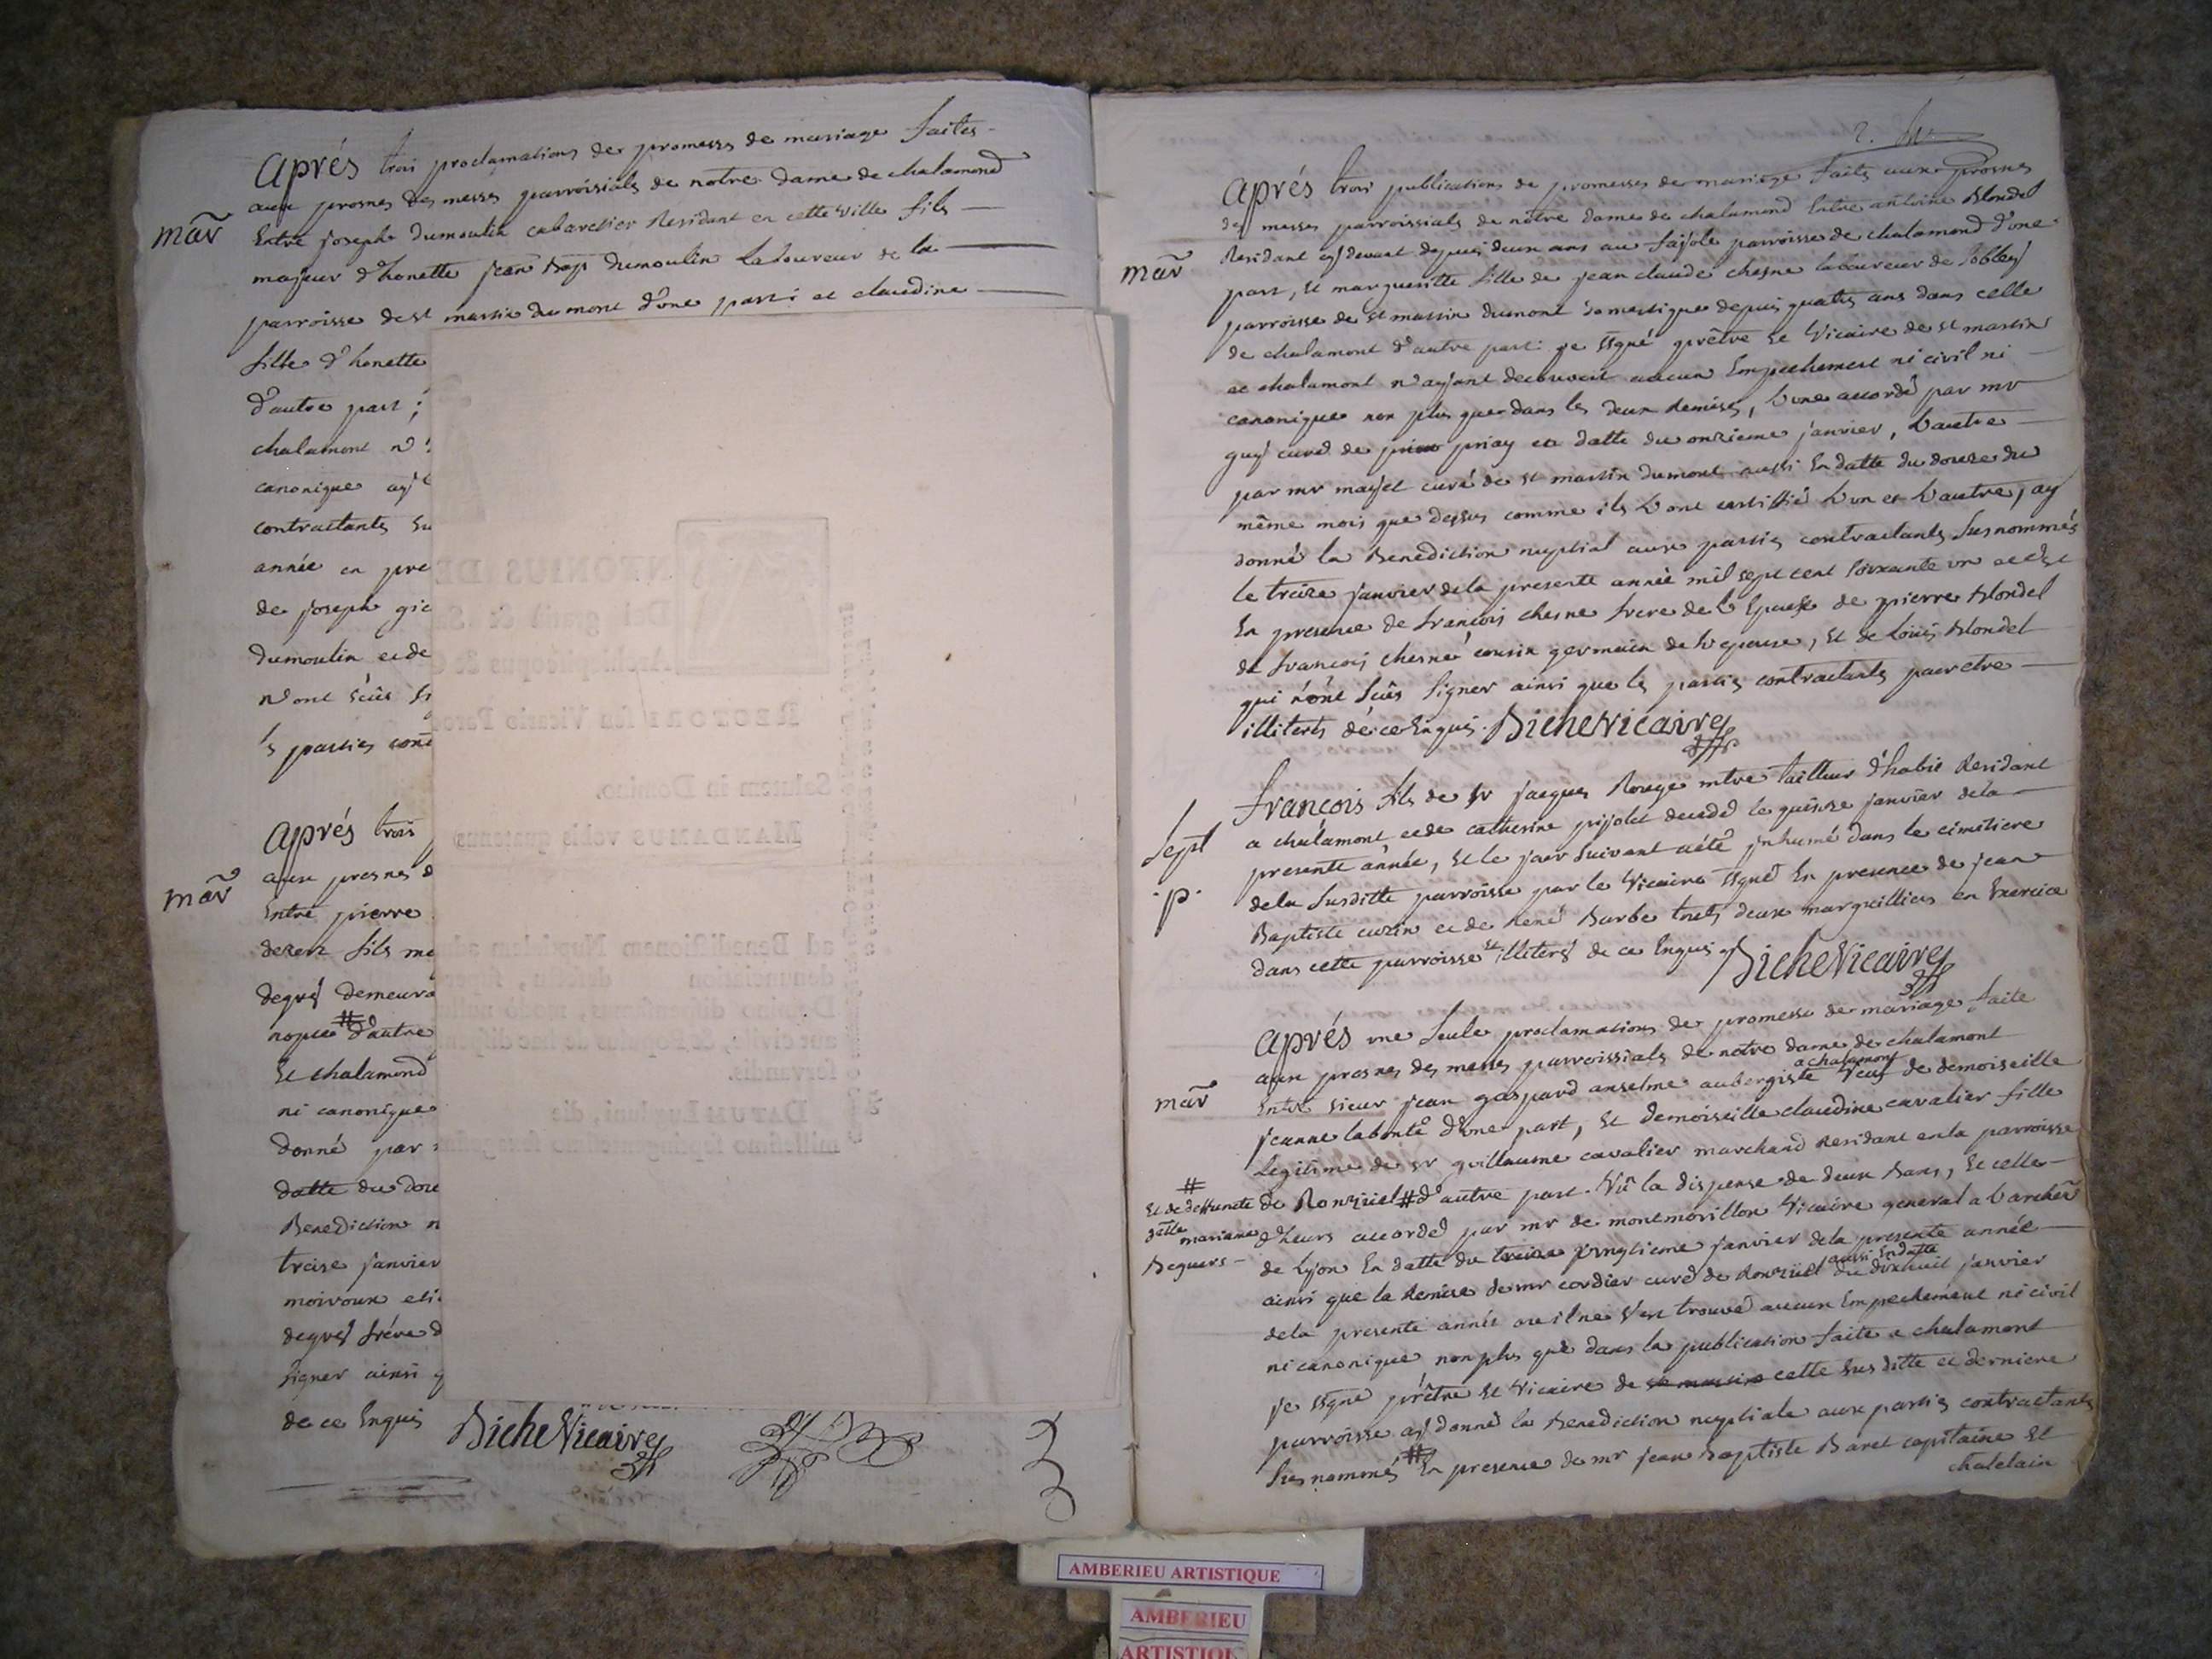 Aprés trois proclamations de promesses de mariage faites
aux prosnes des messes parroisials de notre dame de chalamond
mar̃
Entre joseph dumoulin cabaretier Residant en cette ville fils
majeur d'honette jean bap dumoulin Laboureur de la
parroisse de st martin du mont d'une part; et claudine
fille d'honette
d'autre part;
chalamont n'
canonique ay
contractants
année en pre
de joseph
dumoulin et de
n'ont sçûs
ls parties cont
Aprés trois
mar̃
aux prosnes d
Entre pierre
fils ma
demeura
# d'autre
Et chalamond
ni canonique
donné par
datte du dou
Benediction n
treise janvier
frére d
signer ainsi q
de ce Enquis Biche Vicaire
ANTONIUS DE
Dei gratiâ & Sa
Archiepiscopus &
RECTORI seu Vicario Paroc
Salutem in Domino.
MANDAMUS vobis quatenus
ad Benedictionem Nuptialem
denunciation defectu, super
Domino dispensamus, modò null
aut civile, & Populus de hac dispen
servandis.
DATUM Lugduni, die
millesimo septingentesimo sexagesimo
2.
Aprés trois publications de promesses de mariage faites aux prosnes
de messes parroissials de nôtre dame de chalamond Entre antoine Blondel
mar̃
Residant cy devant depuis deux ans au fajole parroisse de chalamond d'une
part, et margueritte fille de jean claude chesne laboureur de
parroisse de st martin dumont domestique depuis quatre ans dans celle
de chalamont d'autre part: je ssgné prêtre et Vicaire de st martin
et chalamont n'ayant decouvert aucun Empechement ni civil ni
canonique non plus que dans les deux Remises, l'une accordé par mr
guy curé de priay en datte du onzieme janvier, l'autre
par mr mayet curé de st martin dumont aussi en datte du douze du
même mois que dessus comme ils l'ont certiffié l'un et l'autre, j'ay
donné la Benediction nuptial aux parties contractants susnommés
le treize janvier de la presente année mil sept cent soixante un
En presence de françois chesne frere de l'Epouse de pierre blondel
de françois chesne cousin germain de l'epouse, et de Loüis blondel
qui n'ont sçûs signer ainsi que les parties contractants pour etre
illiterés de ce Enquis. Biche Vicaire
françois fils de sr jacques Rouge mtre tailleur d'habit Residant
Sept
a chalamont et de catherine pijolet decedé le quinze janvier de la
presente année, et le jour suivant a été inhumé dans le cimetiere
.p.
de la susditte parroisse par le Vicaire ssgné En presence de jean
Baptiste curin et de René Barbe touts deux marguilliers en Exercice
dans cette parroisse et illiterés de ce Enquis Biche Vicaire
Aprés une seule proclamations de promesse de mariage faite
aux prosnes des messes parroissials de notre dame de chalamont
mar̃
Entre sieur jean gaspard anselme aubergiste a chalamont Veuf de demoiselle
jeanne labonté d'une part, Et demoiselle claudine cavalier fille
Legitime de sr guillaume cavalier marchand Residant en la parroisse
#
Et de deffuncte
mariane
de Ronzuel # d'autre part. Vû la dispense de deux bans, et celle
d'heurs accordé par mr de montmorillon Vicaire general a l'archev̂
de Lyon En datte du treize vingtieme janvier de la presente année
ainsi que la Remise de mr cordier curé de Ronzuel aussi En datte du dixhuit janvier
de la presente année ou il ne s'est trouvé aucun Empechement ni civil
ni canonique non plus que dans la publication faite a chalamont
je ssgné prêtre et Vicaire de st martin cette sus ditte et derniere
parroisse ay donné la Benediction nuptiale aux parties contractants
susnommés # En presence de mr jean baptiste Baret capitaine et
chatelain
AMBERIEU ARTISTIQUE
AMBERIEU
ARTISTIQUE